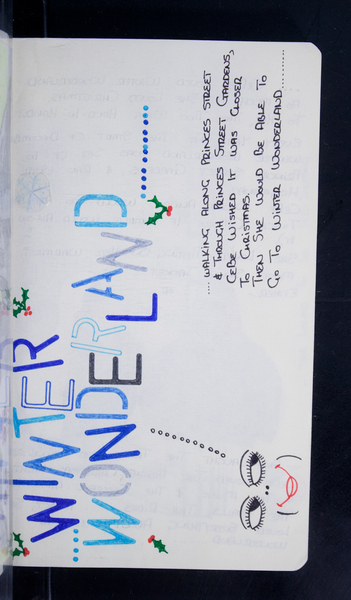 WINTER
....WONDERLAND.......
.... WALKING ALONG PRINCES STREET
& THROUGH PRINCES STREET GARDENS,
CEBE WISHED IT WAS CLOSER
TO CHRISTMAS.
THEN SHE WOULD BE ABLE TO
GO TO WINTER WONDERLAND..........